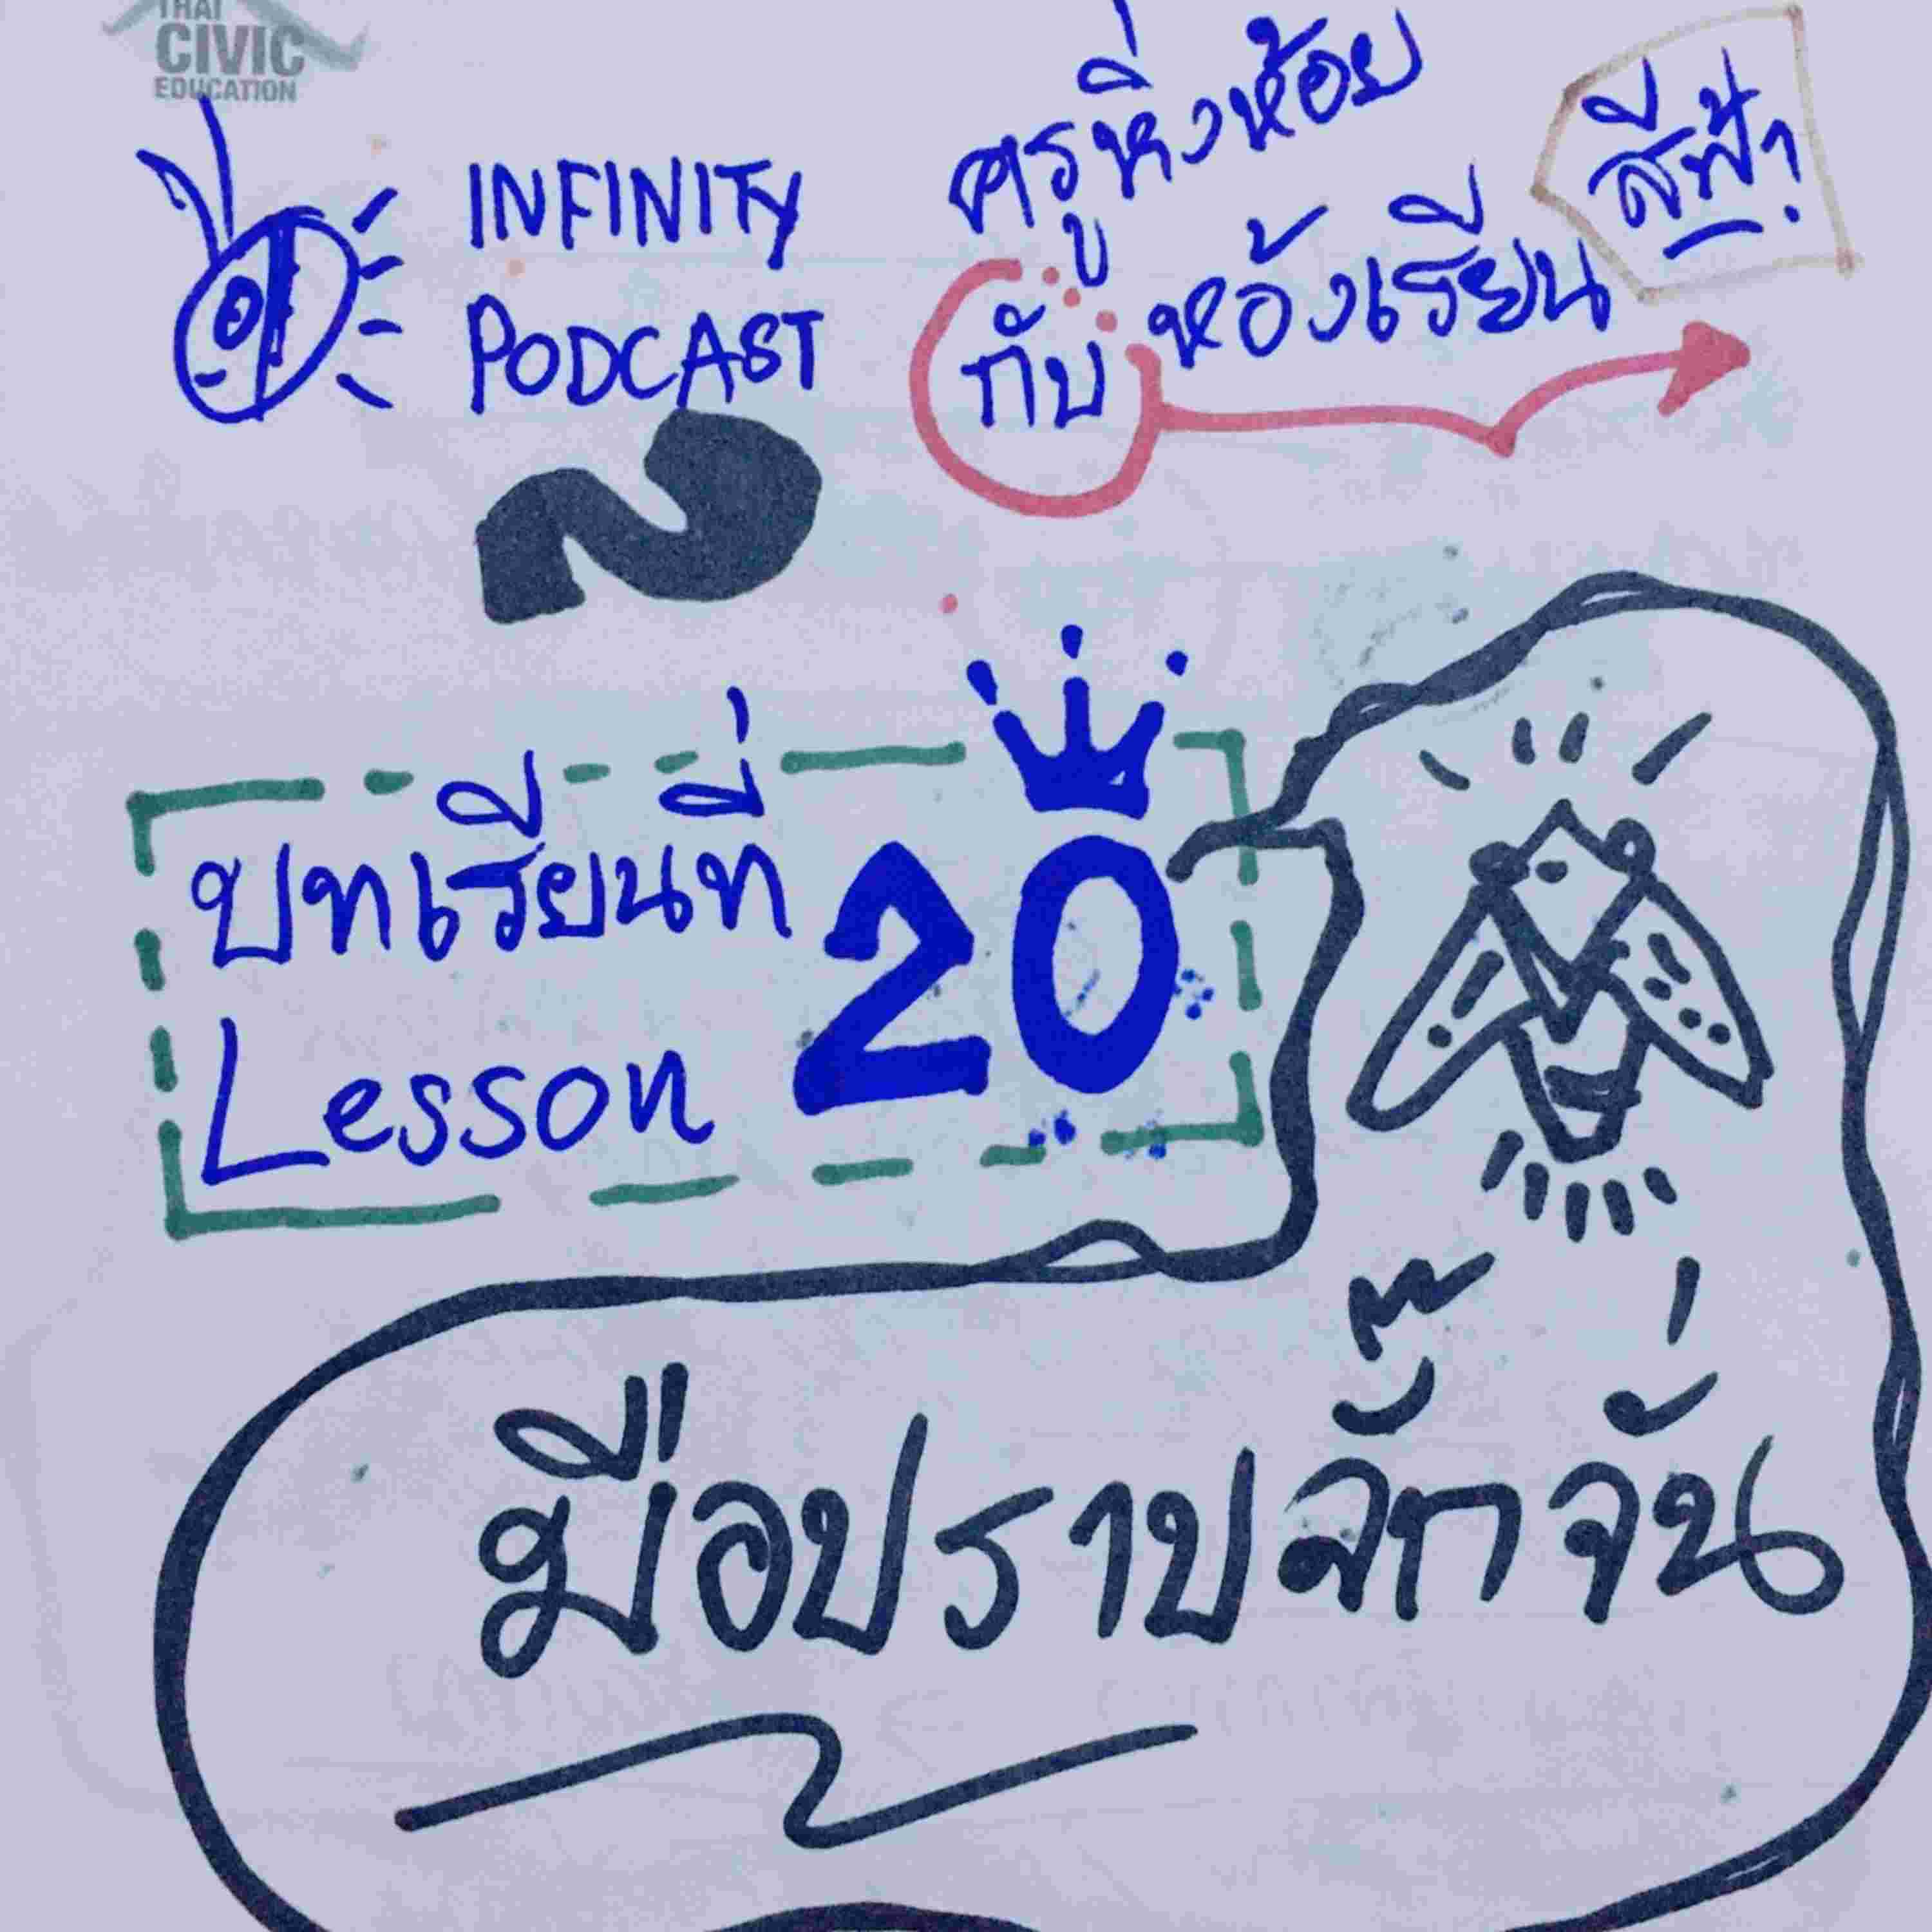 THAI
CIVIC
EDUCATION
INFINITY
PODCAST
ครูหิ่งห้อย
กับ ห้องเรียน
สีฟ้า
บทเรียนที่ 20
Lesson
มือปราบจั๊กจั่น